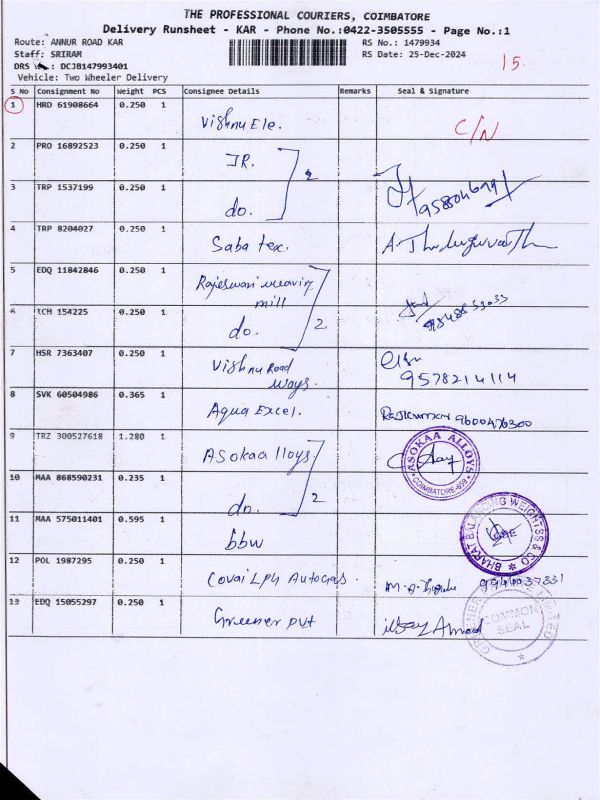 THE PROFESSIONAL COURIERS, COIMBATORE
Delivery Runsheet - KAR - Phone No.:0422-3505555 - Page No.:1
Route: ANNUR ROAD KAR RS No.: 1479934
Staff: SRIRAM RS Date: 25-Dec-2024
15.
DRS No.: DCJB147993401
Vehicle: Two Wheeler Delivery
S No Consignment No Weight PCS Consignee Details Remarks Seal & Signature
1 HRD 61908664 0.250 1 Vishnu Ele. C/N
2 PRO 16892523 0.250 1 JR. 2
3 TRP 1537199 0.250 1 do.
4 TRP 8204027 0.250 1 Saba tex.
5 EDQ 11842846 0.250 1 Rajeswari weaving
mill
6 ICH 154225 0.250 1 do. 2
7 HSR 7363407 0.250 1 Vishnu Road
ways. 9578214114
8 SVK 60504986 0.365 1 Aqua Excel. Rajkumar 9600476300
9 TRZ 300527618 1.280 1 ASokaa lloys. ASOKAA ALLOYS
10 MAA 868590231 0.235 1 do. 2
11 MAA 575011401 0.595 1 bbw BHARAT BALANCING WEIGHTSS & CO
12 POL 1987295 0.250 1 Covai Lph Autogas.
13 EDQ 15055297 0.250 1 Greener pvt COMMON SEAL